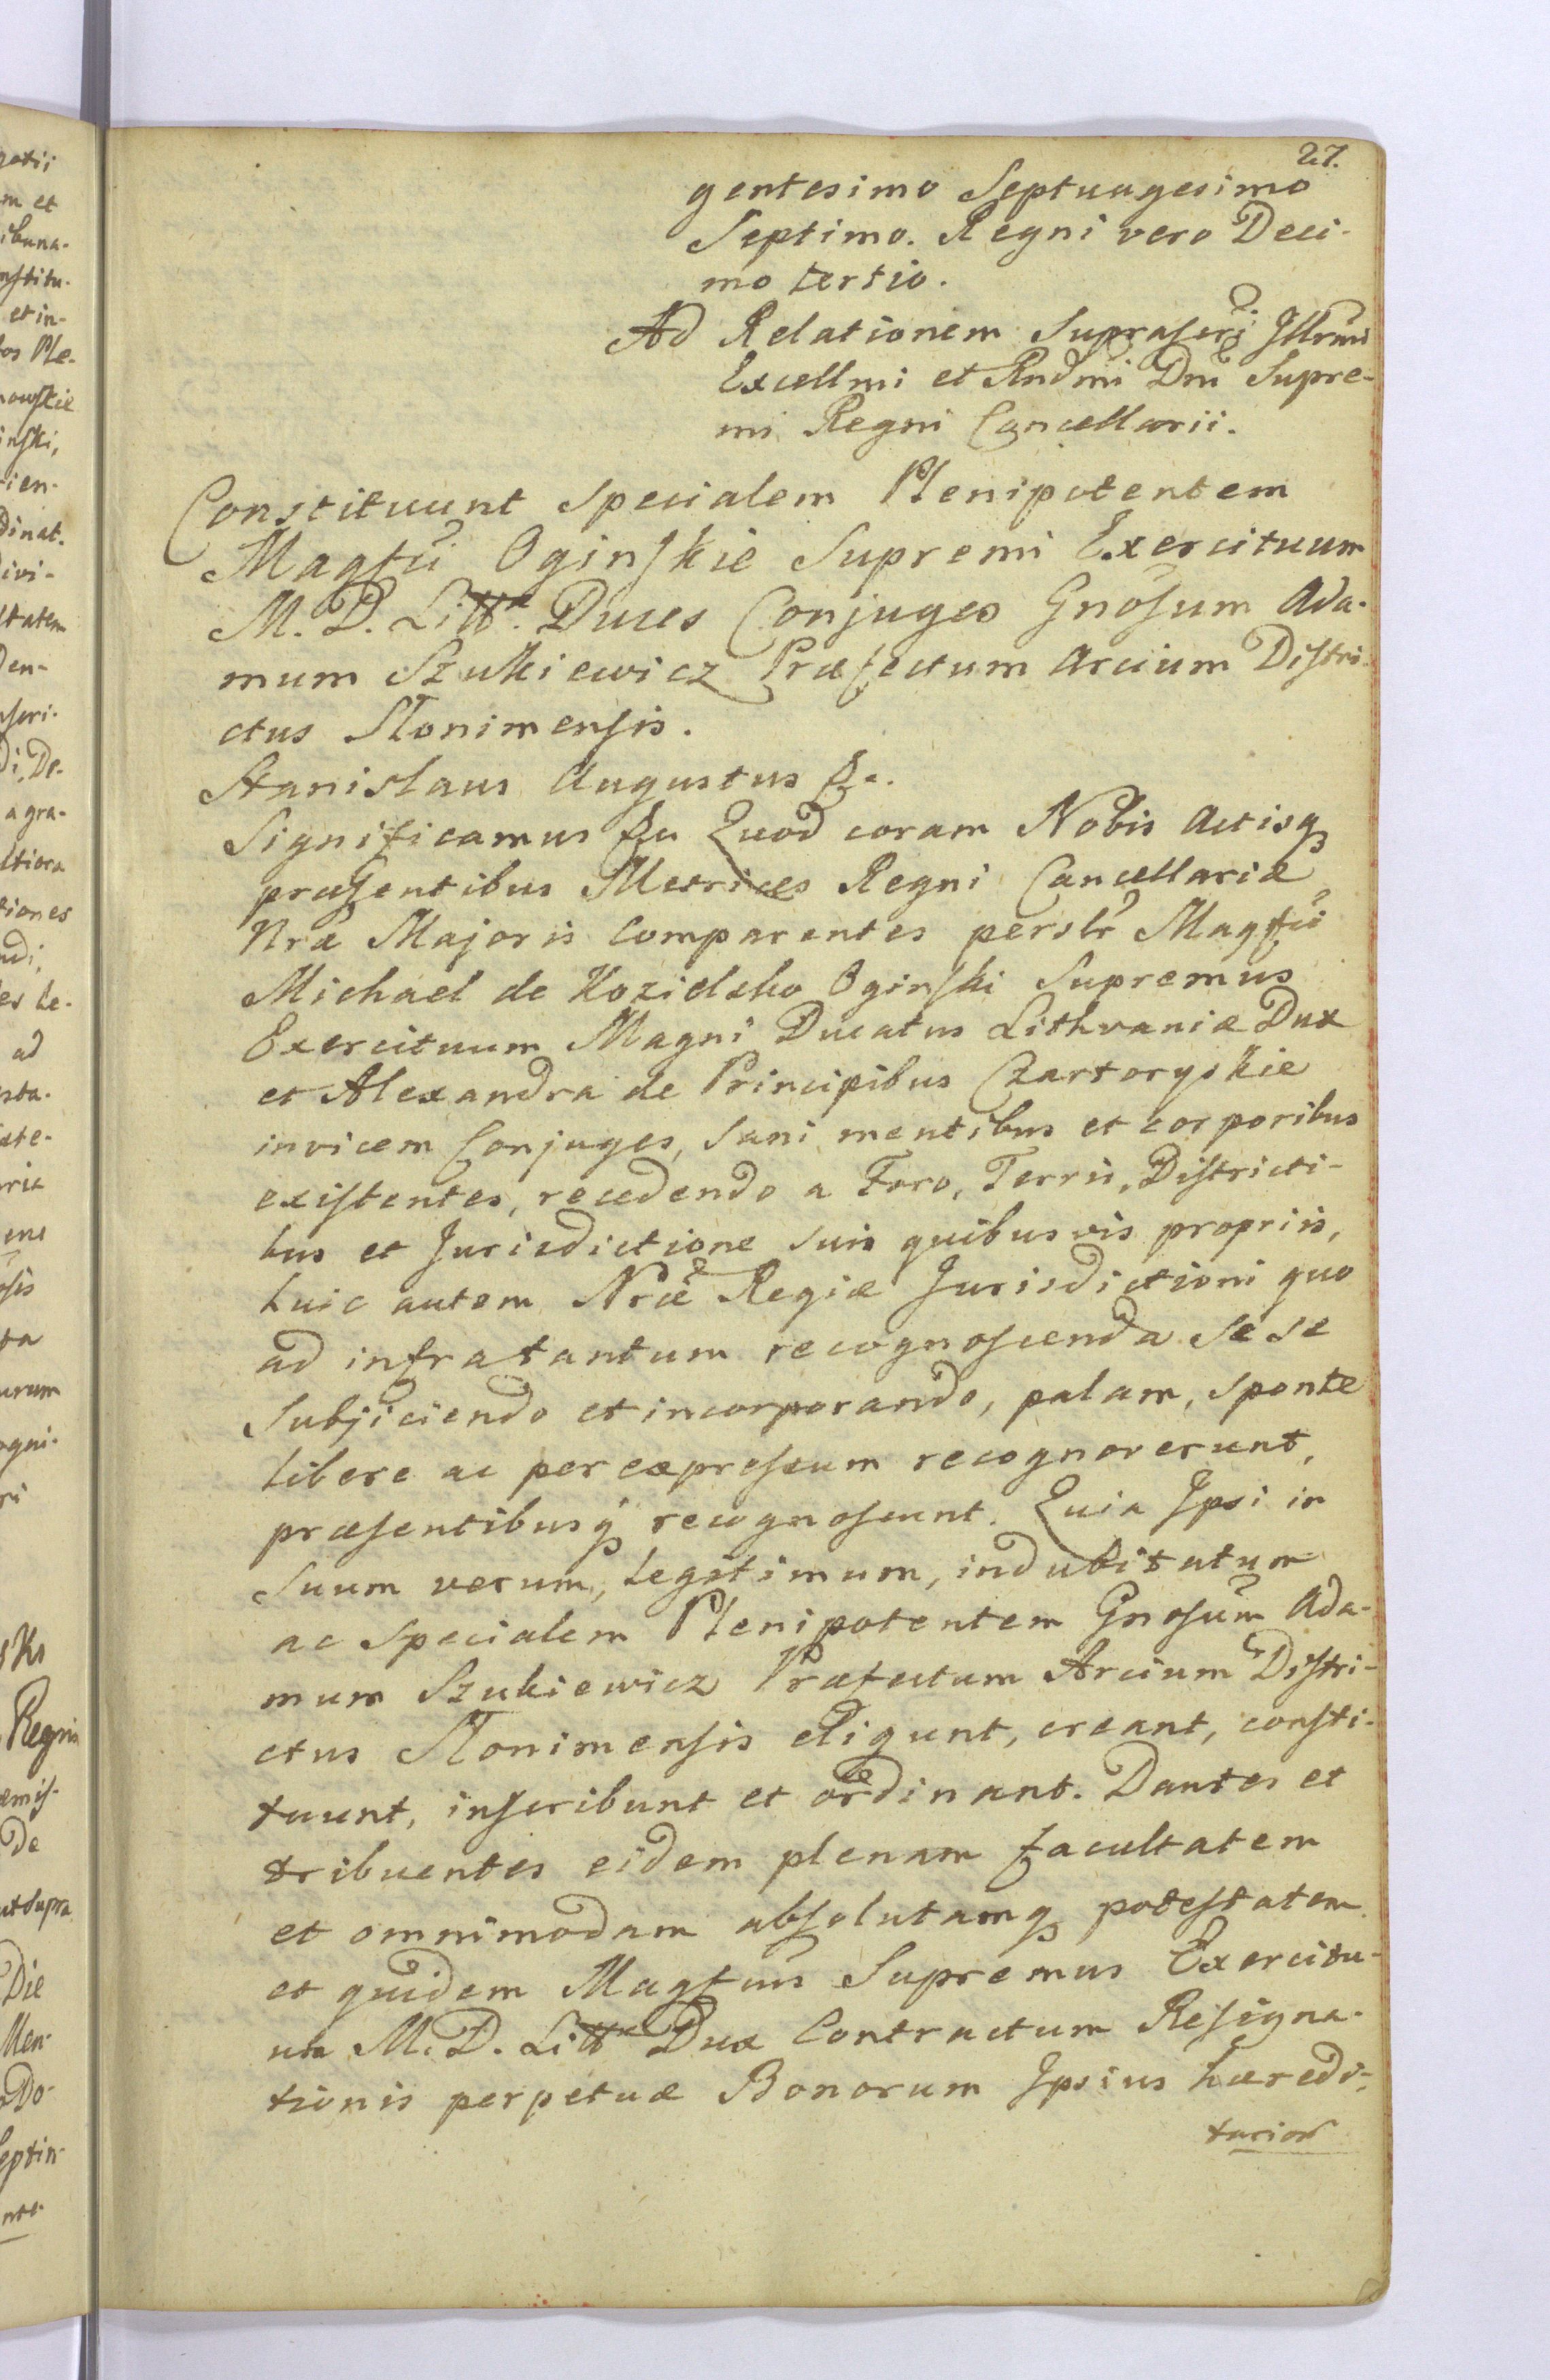 27.
gentesimo Septuagesimo
Septimo. Regni vero Deci-
mo tertio.
Ad Relationem Suprascri Illrmi
Excellmi et Rndmi Dni Supre-
mi Regni Cancellarii.
Constituunt Specialem Plenipotentem
Magfci Oginskie Supremi Exercituum
M. D. Litt. Duces Conjuges Gnosum Ada-
mum Szukiewicz Præfectum Arcium Distri-
ctus Slonimensis.
Stanislaus Augustus &c.
Significamus &c Quod coram Nobis Actisq
præsentibus Metrices Regni Cancellariæ
Nræ Majoris Comparentes perslr Magfci
Michael de Kozielsko Oginski Supremus
Exercituum Magni Ducatus Lithvaniæ Dux
et Alexandra de Principibus Czartoryskie
invicem Conjuges, sani mentibus et corporibus
existentes, recedendo a Foro, Terris, Districti-
bus et Jurisdictione suis quibusvis propriis,
huic autem Nræ Regiæ Jurisdictioni quo
ad infra tantum recognoscenda sese
Subjiciendo et incorporando, palam, sponte
libere ac per expressum recognoverunt,
præsentibusq recognoscunt. Quia Ipsi in
Suum verum, legitimum, indubitatum
ac Specialem Plenipotentem Gnosum Ada-
mum Szukiewicz Præfectum Arcium Distri-
ctus Slonimensis eligunt, creant, consti-
tuunt, inscribunt et ordinant. Dantes et
tribuentes eidem plenam facultatem
et omnimodam absolutamq potestatem
et quidem Magfcus Supremus Exercitu-
um M. D. Litt Dux Contractum Resigna-
tionis perpetuæ Bonorum Ipsius hæredi-
tarior